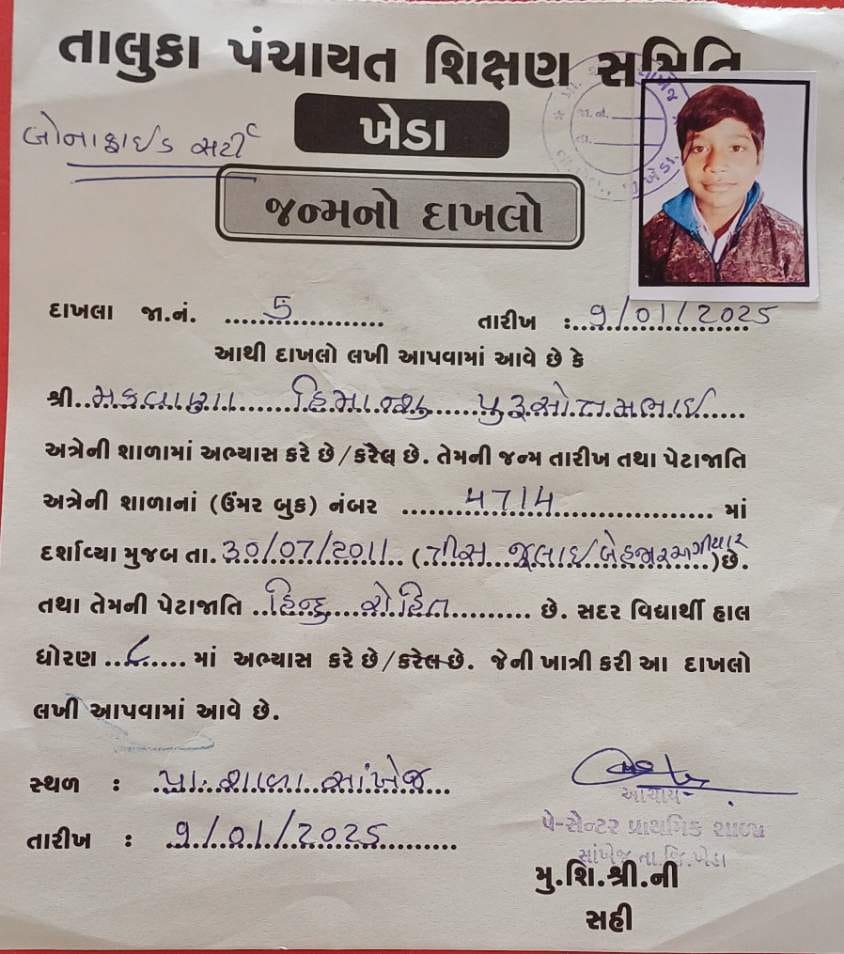 તાલુકા પંચાયત શિક્ષણ સમિતિ
ખેડા
બોનાફાઇડ સર્ટી
જન્મનો દાખલો
દાખલા જા.નં. 5 તારીખ : 9/01/2025
આથી દાખલો લખી આપવામાં આવે છે કે
શ્રી મકવાણા હિમાન્શુ પુરૂસોત્તમભાઇ
અત્રેની શાળામાં અભ્યાસ કરે છે/કરેલ છે. તેમની જન્મ તારીખ તથા પેટાજાતિ
અત્રેની શાળાનાં (ઉંમર બુક) નંબર 4714 માં
દર્શાવ્યા મુજબ તા. 30/07/2011 (ત્રીસ જુલાઇ બેહજાર અગીયાર) છે.
તથા તેમની પેટાજાતિ હિન્દુ રોહિત છે. સદર વિદ્યાર્થી હાલ
ધોરણ ૮ માં અભ્યાસ કરે છે/કરેલ છે. જેની ખાત્રી કરી આ દાખલો
લખી આપવામાં આવે છે.
સ્થળ : પ્રા. શાળા સાંખેજ
તારીખ : 9/01/2025
આચાર્ય
પે-સેન્ટર પ્રાથમિક શાળા
સાંખેજ તા.જિ.ખેડા
મુ.શિ.શ્રી.ની
સહી